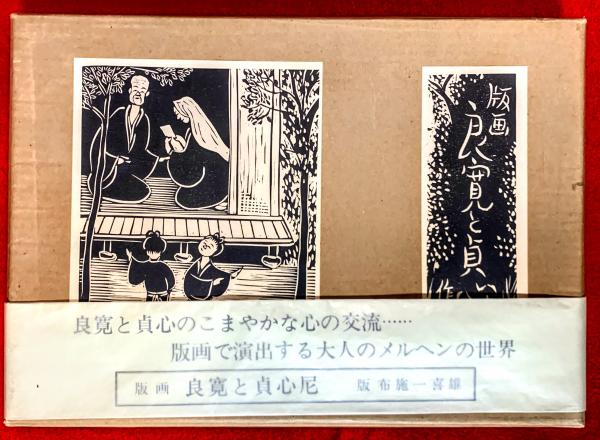 版画
良寛と貞心
良寛と貞心のこまやかな心の交流……
版画で演出する大人のメルヘンの世界
版画 良寛と貞心尼 版布施一喜雄